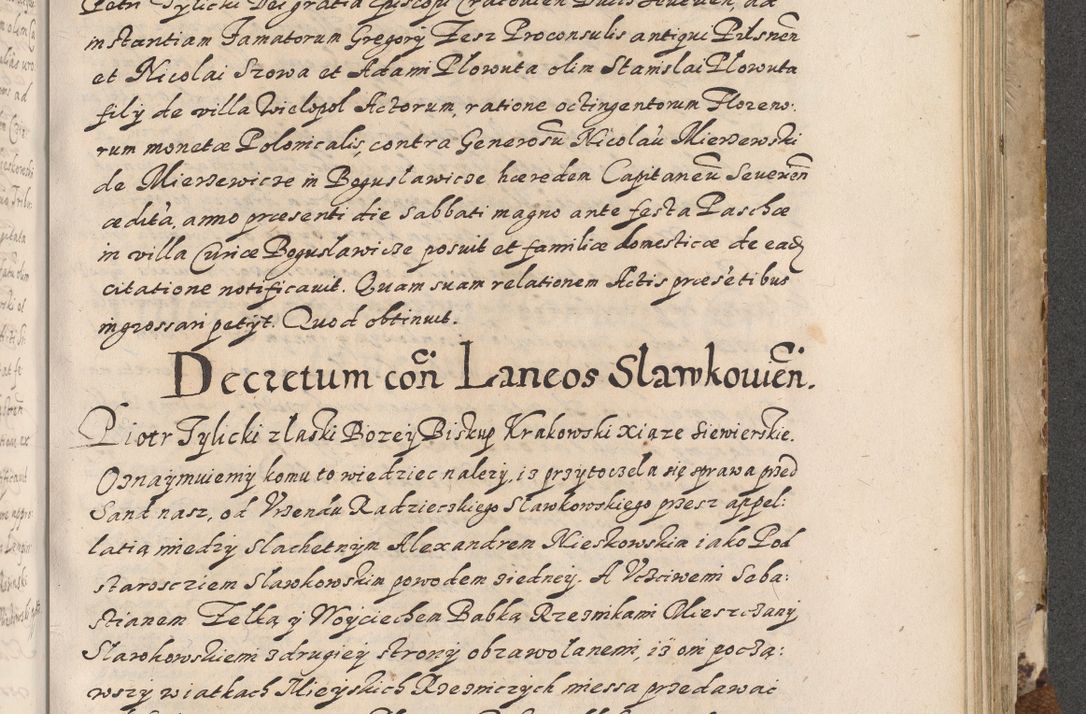 Petri Tylicki Dei gratia Episcopi Cracovien Ducis Severien, ad
instantiam Famatorum Gregorÿ Fesz Proconsulis antiqui Pilsnen
et Nicolai Szowa et Adami Plowuta olim Stanislai Plowuta
filÿ de villa Wielopol Actorum, ratione octingentorum Floreno:
rum monetæ Polonicalis, contra Generosũ Nicolaũ Mierzewski
de Mierzewicze in Boguslawicze hæredem Capitaneũ Severien
ædita, anno præsenti die Sabbati magno ante festa Paschæ
in villa Curiæ Boguslawicze posuit et familiæ domesticæ de eadẽ
citatione notificavit. Quam suam relationem Actis præsẽtibus
ingrossari petÿt. Quod obtinuit.
Decretum coñ Laneos Slawkovieñ.
Piotr Tylicki z łaski Bozey Biskup Krakowski Xiąze Siewierskie.
Oznaymuiemy komu to wiedziec nalezy, iz przytoczela się sprawa przed
Sand nasz, od Vrzendu Radzieckiego Slawkowskiego przesz appel:
latią miedzy Slachetnym Alexandrem Nieskowskim iako Pod
starosciem Slawkowskim powodem ziedney. A Vczciwemi Seba:
stianem Felką y Woyciechem Babką Rzeznikami Mieszczany
Slawkowskiemi z drugiey strony obzawolanemi, iż oni począ:
wszy w iatkach Mieyskich Rzezniczych miessa przedawac